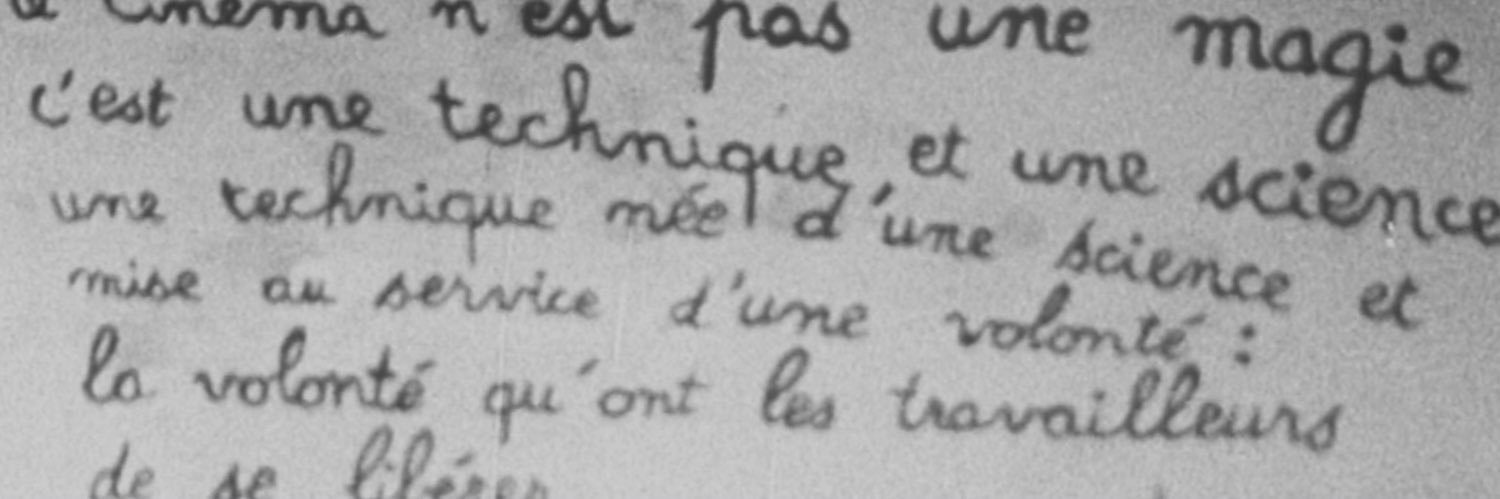 le cinéma n'est pas une magie
c'est une technique et une science
une technique née d'une science et
mise au service d'une volonté :
la volonté qu'ont les travailleurs
de se libérer